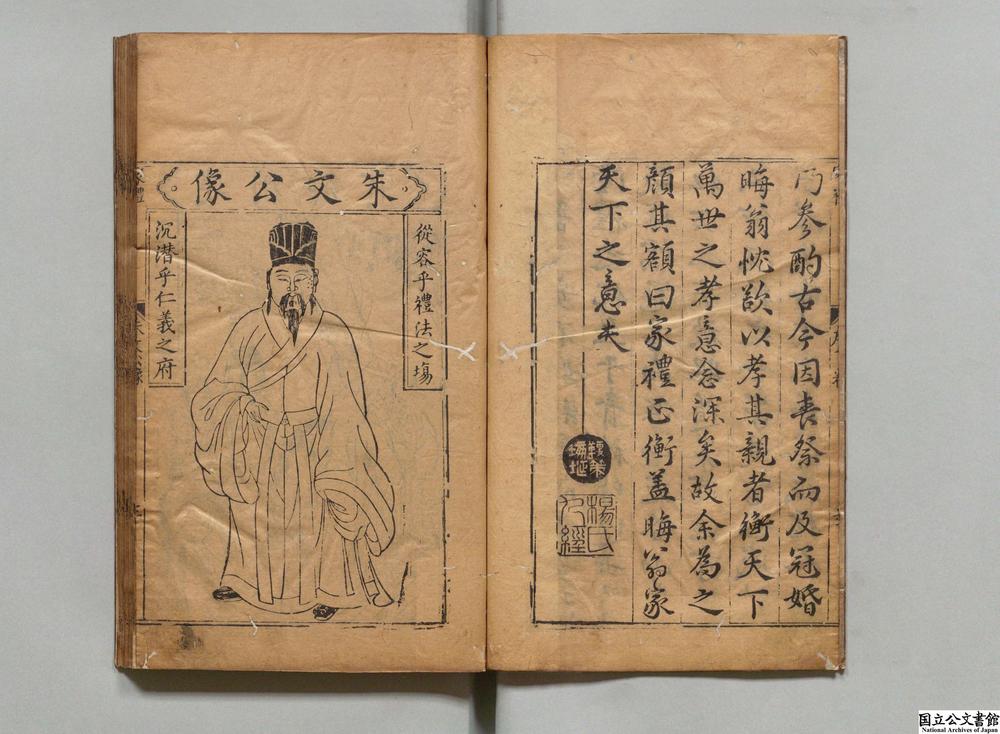 乃參酌古今因喪祭而及冠婚
晦翁忱欲以孝其親者衡天下
萬世之孝意念深矣故余為之
顔其額曰家禮正衡蓋晦翁家
天下之意夫
楊氏
經
朱文公像
從容乎禮法之場
沉潛乎仁義之府
国立公文書館
National Archives of Japan